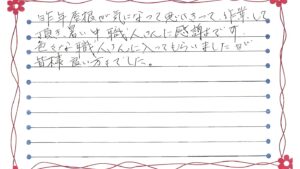 昨年屋根が気になって思いきって、作業して
頂き暑い中職人さんに感謝です
色々な職人さんに入ってもらいましたが
皆様 良い方々でした。